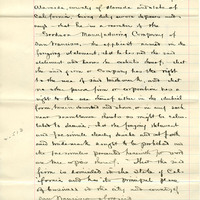 Alameda, county of Alameda and state of
California, being duly sworn deposes and
says that he is a member of the
Manufacturing Company of
San Francisco, the applicant named in the
foregoing statement, that he has read the said
statement and knows the contents thereof, that
the said firm or Company has the right
to the use of said trademark, and that
no other person firm or corporation has a
right to the use thereof either in the identical
form, herein described and shown, or in any such
near resemblance thereto as might be calcu-
lated to deceive; that the foregoing statement
and facsimile clearly shows and set forth
said trade mark sought to be protected and
the facsimiles presented herewith
are true copies thereof. That the said
firm is domiciled in the State of Cali-
fornia and has its principal place
of business in the city and county of
San Francisco